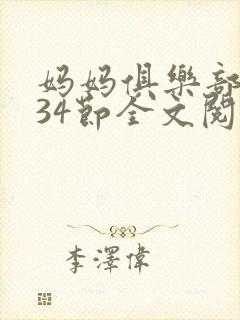 妈妈俱樂部
34節全文閱
李澤偉